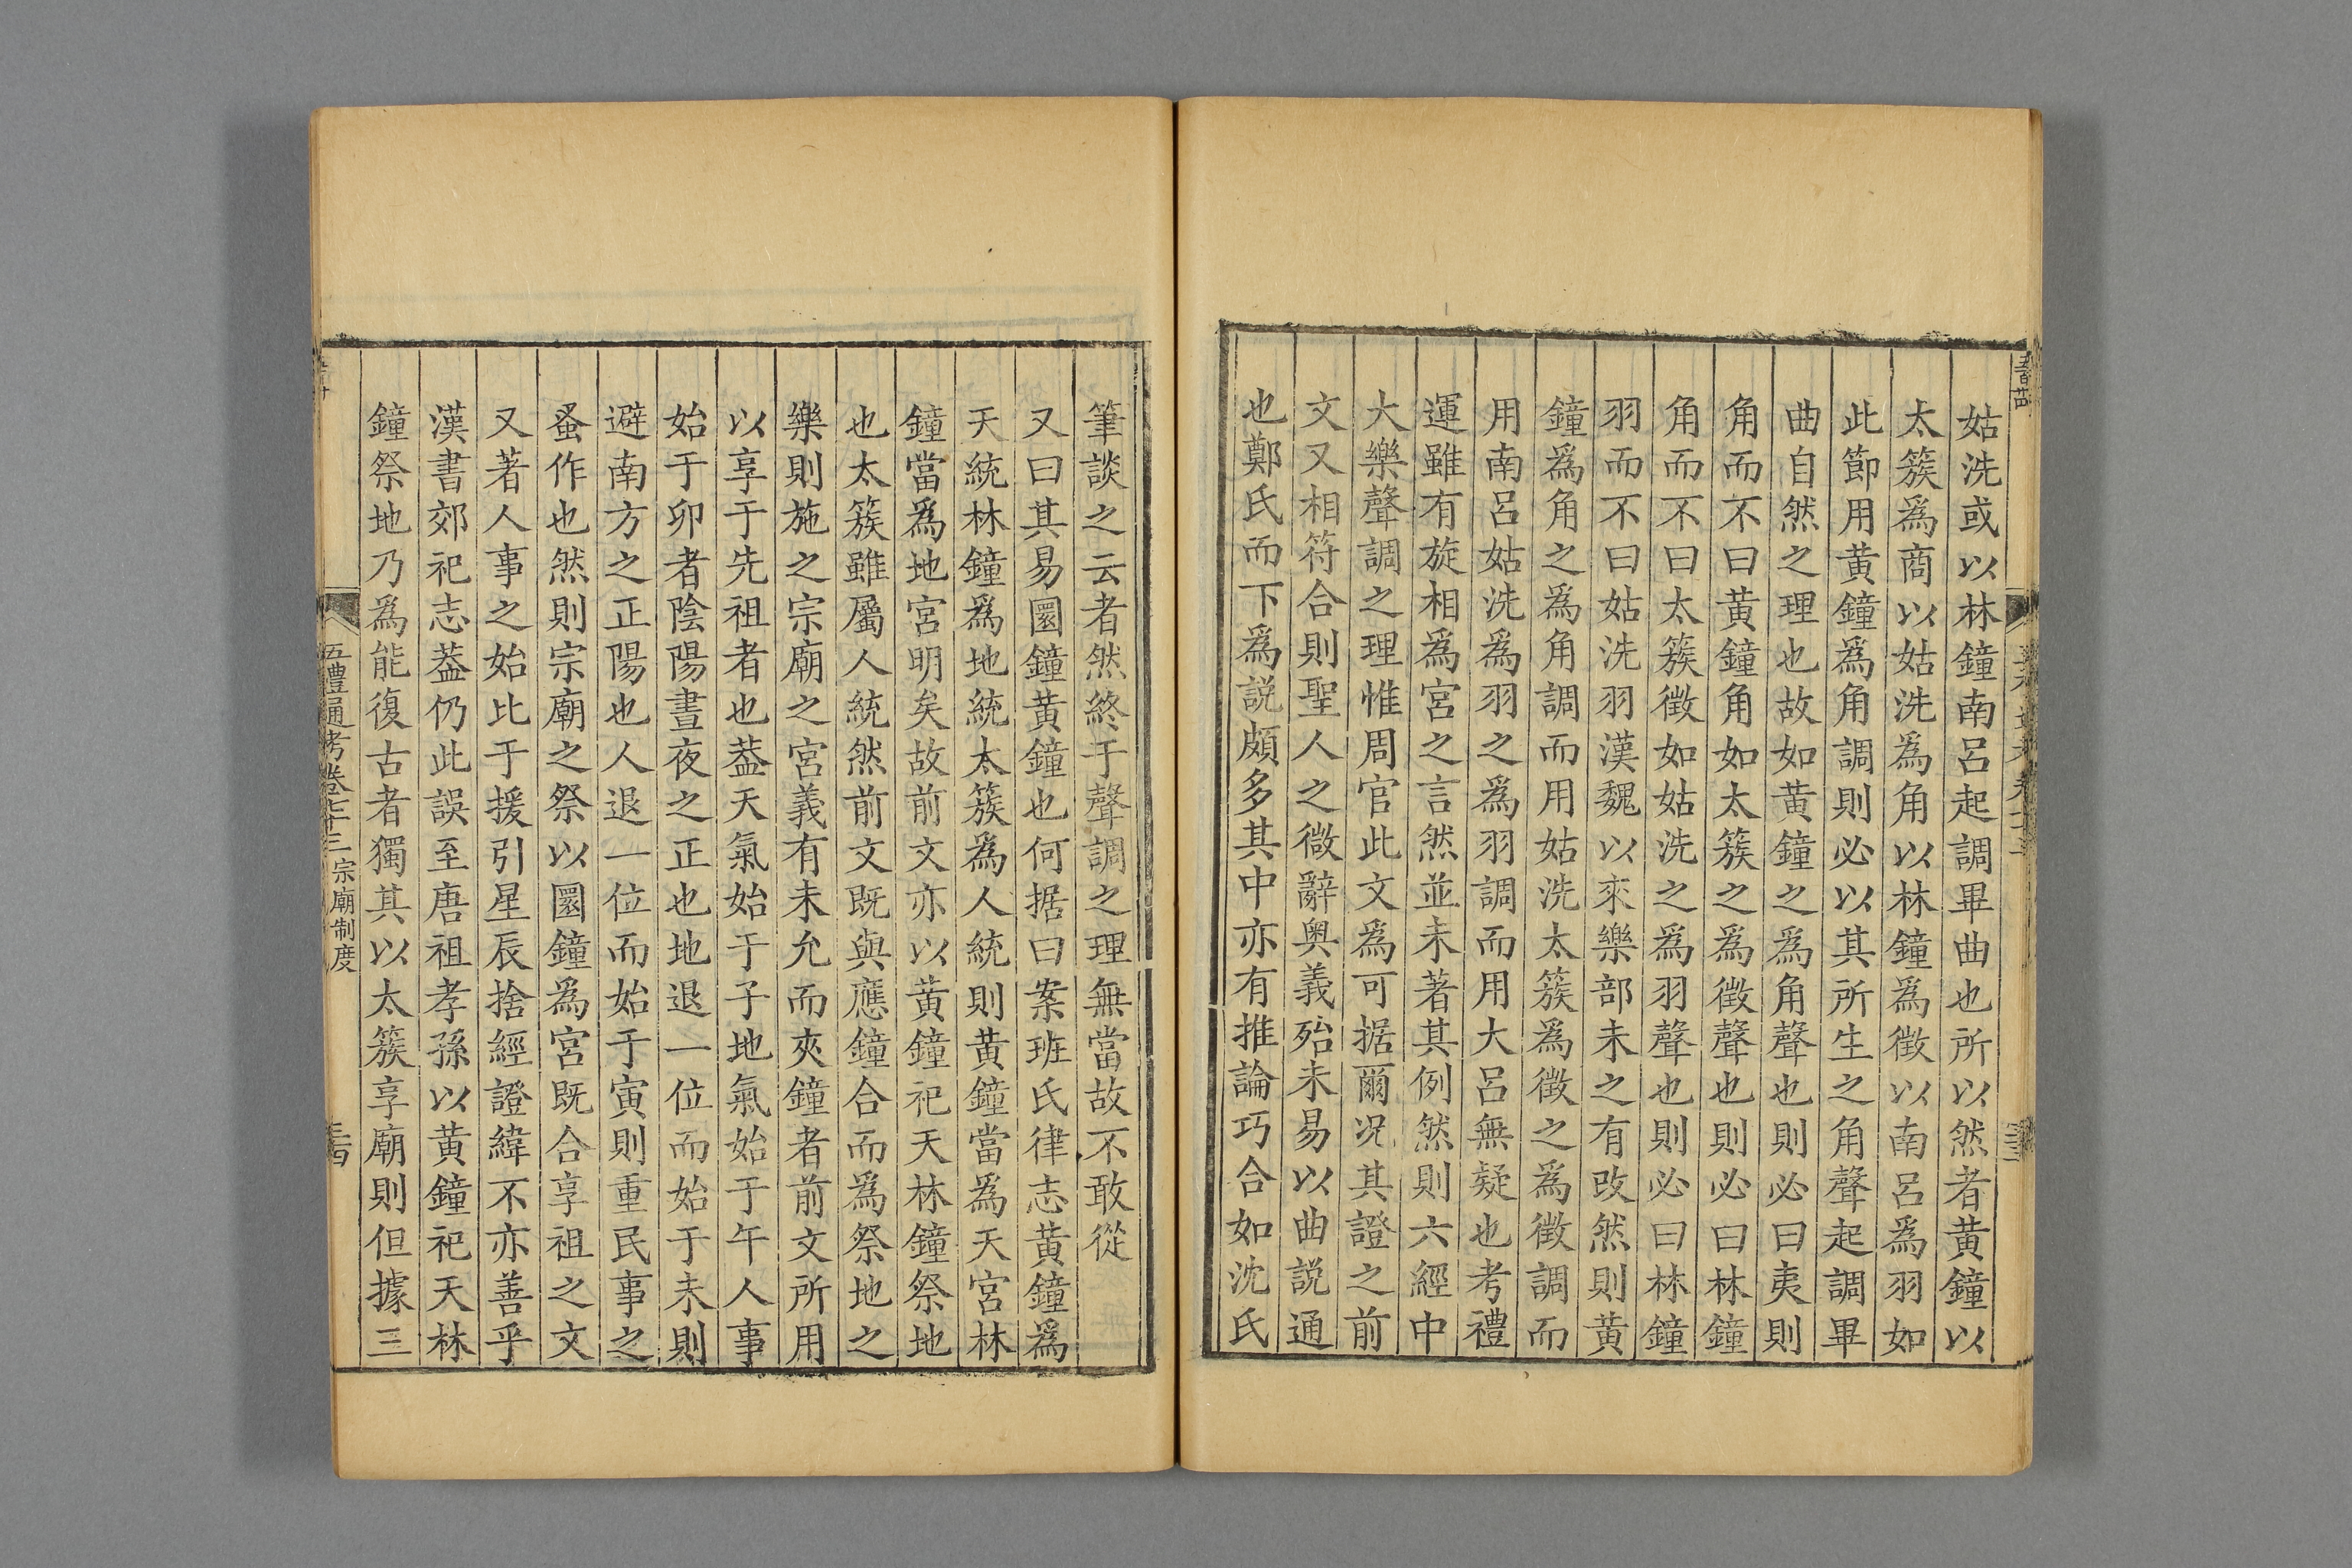 姑洗或以林鐘南呂起調畢曲也所以然者黃鐘以
太簇爲商以姑洗爲角以林鐘爲徵以南呂爲羽如
此節用黃鐘爲角調則必以其所生之角聲起調畢
曲自然之理也故如黃鐘之爲角聲也則必曰夷則
角而不曰黃鐘角如太簇之爲徵聲也則必曰林鐘
角而不曰太簇徵如姑洗之爲羽聲也則必曰林鐘
羽而不曰姑洗羽漢魏以來樂部未之有改然則黃
鐘爲角之爲角調而用姑洗太簇爲徵之爲徵調而
用南呂姑洗爲羽之爲羽調而用大呂無疑也考禮
運雖有旋相爲宮之言然並未著其例然則六經中
大樂聲調之理惟周官此文爲可据爾况其證之前
文又相符合則聖人之微辭奥義殆未易以曲説通
也鄭氏而下爲説頗多其中亦有推論巧合如沈氏
筆談之云者然終于聲調之理無當故不敢從
又曰其易圜鐘黃鐘也何据曰案班氏律志黃鐘爲
天統林鐘爲地統太簇爲人統則黃鐘當爲天宮林
鐘當爲地宮明矣故前文亦以黃鐘祀天林鐘祭地
也太簇雖屬人統然前文既與應鐘合而爲祭地之
樂則施之宗廟之宮義有未允而夾鐘者前文所用
以享于先祖者也葢天氣始于子地氣始于午人事
始于卯者陰陽晝夜之正也地退一位而始于未則
避南方之正陽也人退一位而始于寅則重民事之
蚤作也然則宗廟之祭以圜鐘爲宮既合享祖之文
又著人事之始比于援引星辰捨經證緯不亦善乎
漢書郊祀志葢仍此誤至唐祖孝孫以黃鐘祀天林
鐘祭地乃爲能復古者獨其以太簇享廟則但據三
五禮通考卷七十三 宗廟制度